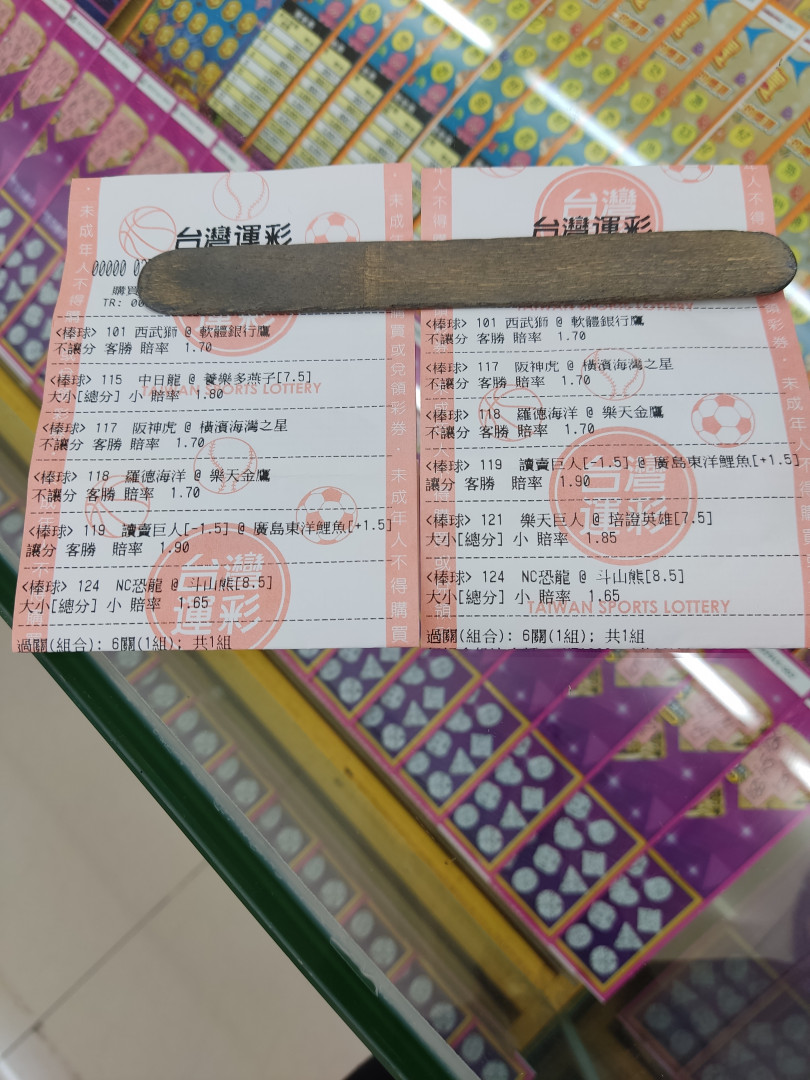 台灣運彩
00000 0
購買
TR: 00
<棒球> 101 西武獅 @ 軟體銀行鷹
不讓分 客勝 賠率 1.70
<棒球> 115 中日龍 @ 養樂多燕子[7.5]
大小[總分] 小 賠率 1.80
TAIWAN SPORTS LOTTERY
<棒球> 117 阪神虎 @ 橫濱海灣之星
不讓分 客勝 賠率 1.70
<棒球> 118 羅德海洋 @ 樂天金鷹
不讓分 客勝 賠率 1.70
<棒球> 119 讀賣巨人[-1.5] @ 廣島東洋鯉魚[+1.5]
讓分 客勝 賠率 1.90
<棒球> 124 NC恐龍 @ 斗山熊[8.5]
大小[總分] 小 賠率 1.65
台灣運彩
過關(組合): 6關(1組); 共1組
未成年人不得購買或兌領彩券．未成年人不得購買
台灣
台灣運彩
LOTTERY
<棒球> 101 西武獅 @ 軟體銀行鷹
不讓分 客勝 賠率 1.70
<棒球> 117 阪神虎 @ 橫濱海灣之星
不讓分 客勝 賠率 1.70
<棒球> 118 羅德海洋 @ 樂天金鷹
不讓分 客勝 賠率 1.70
<棒球> 119 讀賣巨人[-1.5] @ 廣島東洋鯉魚[+1.5]
讓分 客勝 賠率 1.90
<棒球> 121 樂天巨人 @ 培證英雄[7.5]
大小[總分] 小 賠率 1.85
台灣運彩
<棒球> 124 NC恐龍 @ 斗山熊[8.5]
大小[總分] 小 賠率 1.65
TAIWAN SPORTS LOTTERY
過關(組合): 6關(1組); 共1組